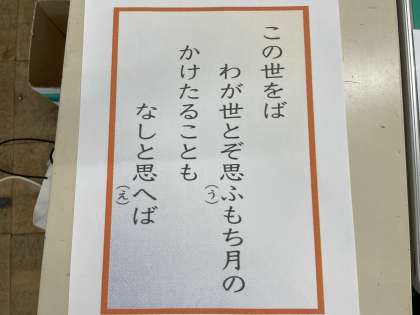 この世をば
わが世とぞ思ふ(う)もち月の
かけたることも
なしと思へ(え)ば